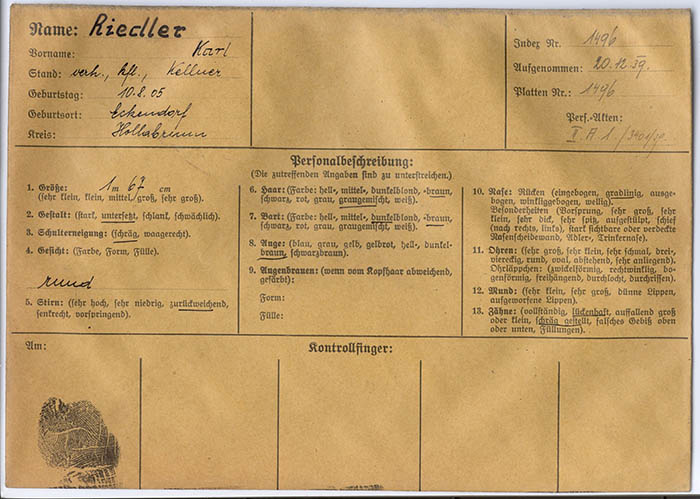 Name: Riedler
Vorname: Karl
Stand: verh., kfl., Kellner
Geburtstag: 10.8.05
Geburtsort: Eckendorf
Kreis: Hollabrunn
Index Nr. 1496
Aufgenommen: 20.12.39.
Platten Nr.: 1496
Pers.-Akten:
II A 1 /3401/39
Personalbeschreibung:
(Die zutreffenden Angaben sind zu unterstreichen.)
1. Größe: 1 m 67 cm
(sehr klein, klein, mittel, groß, sehr groß).
2. Gestalt: (stark, untersetzt, schlank, schwächlich).
3. Schulterneigung: (schräg, waagerecht).
4. Gesicht: (Farbe, Form, Fülle).
rund
5. Stirn: (sehr hoch, sehr niedrig, zurückweichend,
senkrecht, vorspringend).
6. Haar: (Farbe: hell-, mittel-, dunkelblond, -braun,
schwarz, rot, grau, graugemischt, weiß).
7. Bart: (Farbe: hell-, mittel-, dunkelblond, -braun,
schwarz, rot, grau, graugemischt, weiß).
8. Auge: (blau, grau, gelb, gelbrot, hell-, dunkel-
braun, schwarzbraun).
9. Augenbrauen: (wenn vom Kopfhaar abweichend,
gefärbt):
Form:
Fülle:
10. Nase: Rücken (eingebogen, gradlinig, ausge-
bogen, winkliggebogen, wellig).
Besonderheiten (Vorsprung, sehr groß, sehr
klein, sehr dick, sehr spitz, aufgestülpt, schief
(nach rechts, links), stark sichtbare oder verdeckte
Nasenscheidewand, Adler-, Trinkernase).
11. Ohren: (sehr groß, sehr klein, sehr schmal, drei-,
viereckig, rund, oval, abstehend, sehr anliegend).
Ohrläppchen: (zwickelförmig, rechtwinklig, bo-
genförmig, freihängend, durchlocht, durchrissen).
12. Mund: (sehr klein, sehr groß, dünne Lippen,
aufgeworfene Lippen).
13. Zähne: (vollständig, lückenhaft, auffallend groß
oder klein, schräg gestellt, falsches Gebiß oben
oder unten, Füllungen).
Am:
Kontrollfinger: